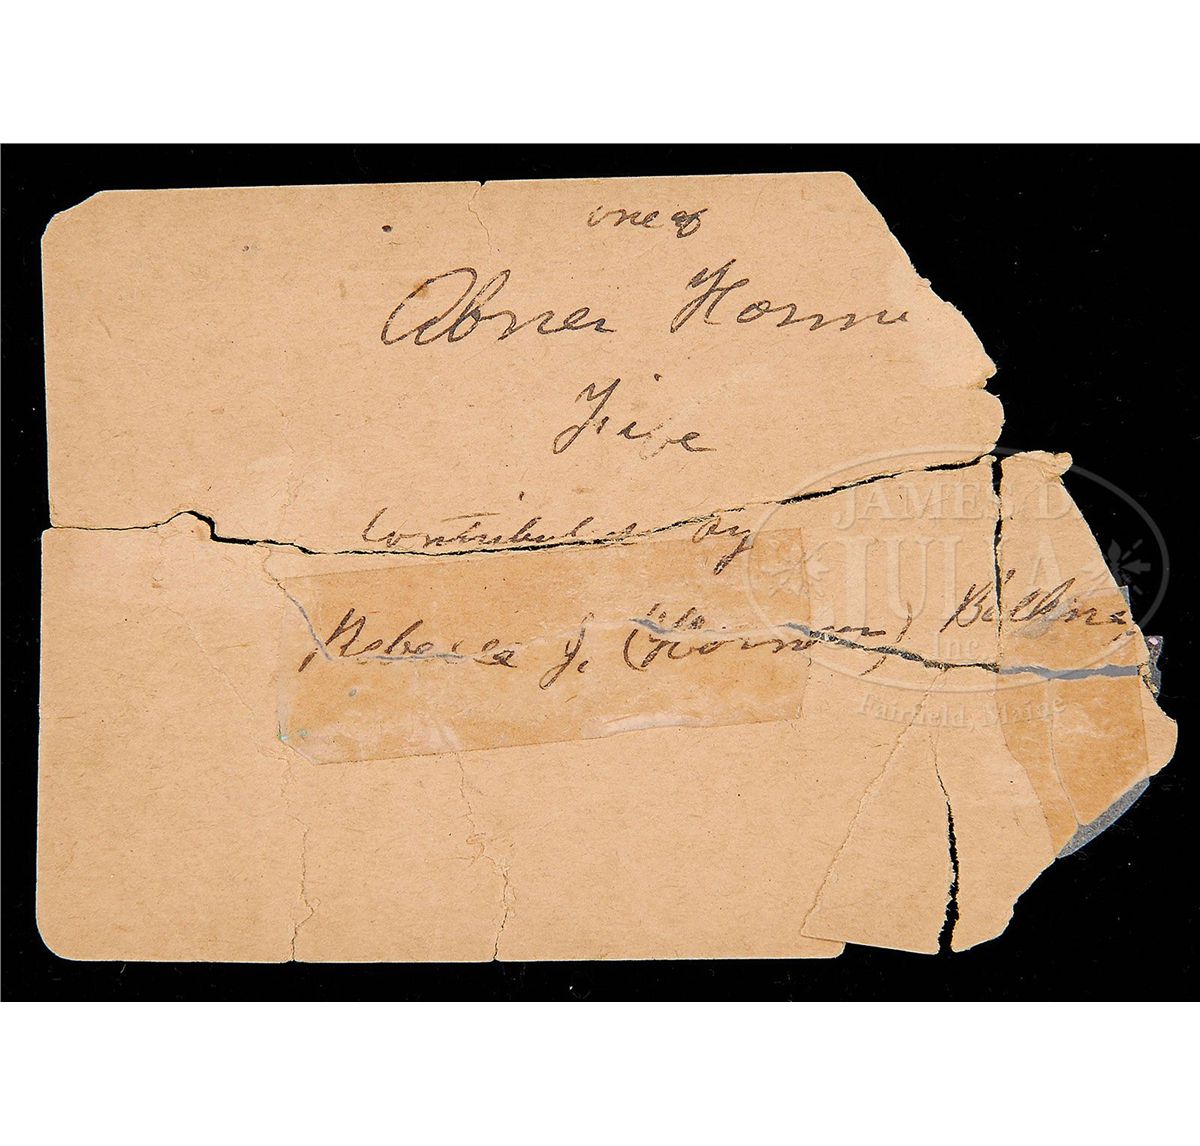 one of
Abner Horme
Five
Contributed by
Rebecca J. (Horman) Billing
JAMES D.
JULIA
Inc.
Fairfield, Maine